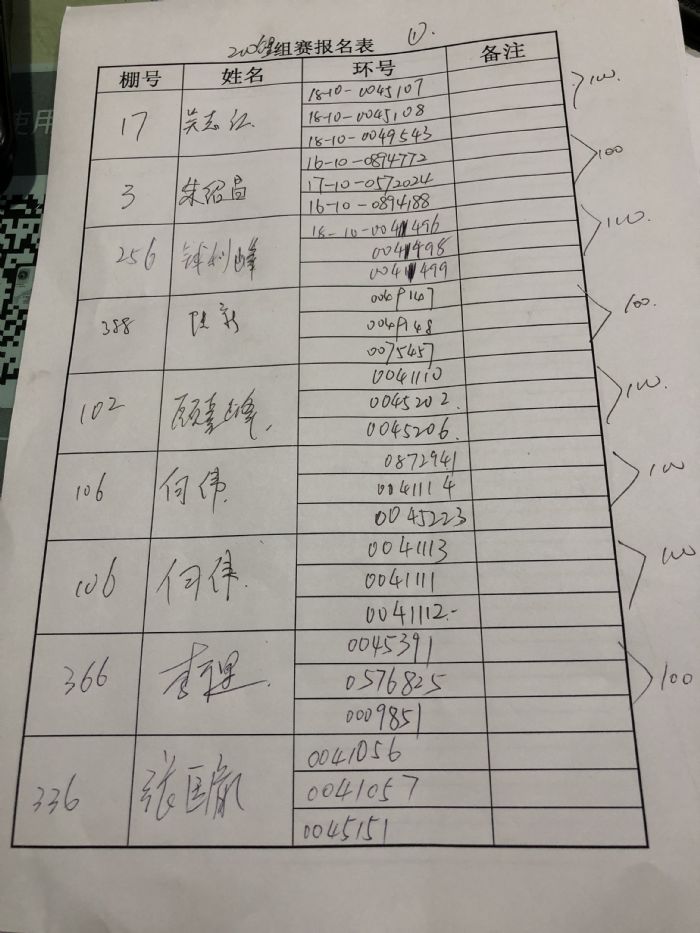 组赛报名表 ①.
棚号 姓名 环号 备注
17 吴志江 18-10-0045107
18-10-0045108
18-10-0049543
100.
3 朱绍昌 16-10-0894772
17-10-0572024
16-10-0894188
100
256 18-10-0041496
0041498
0041499
100.
388 0049147
0049148
0075457
100.
102 0041110
0045202.
0045206.
100.
106 何伟. 0872941
0041114
0045223
100
106 何伟. 0041113
0041111
0041112.-
100
366 0045391
0576825
0009851
100
336 张国 0041056
0041057
0045151